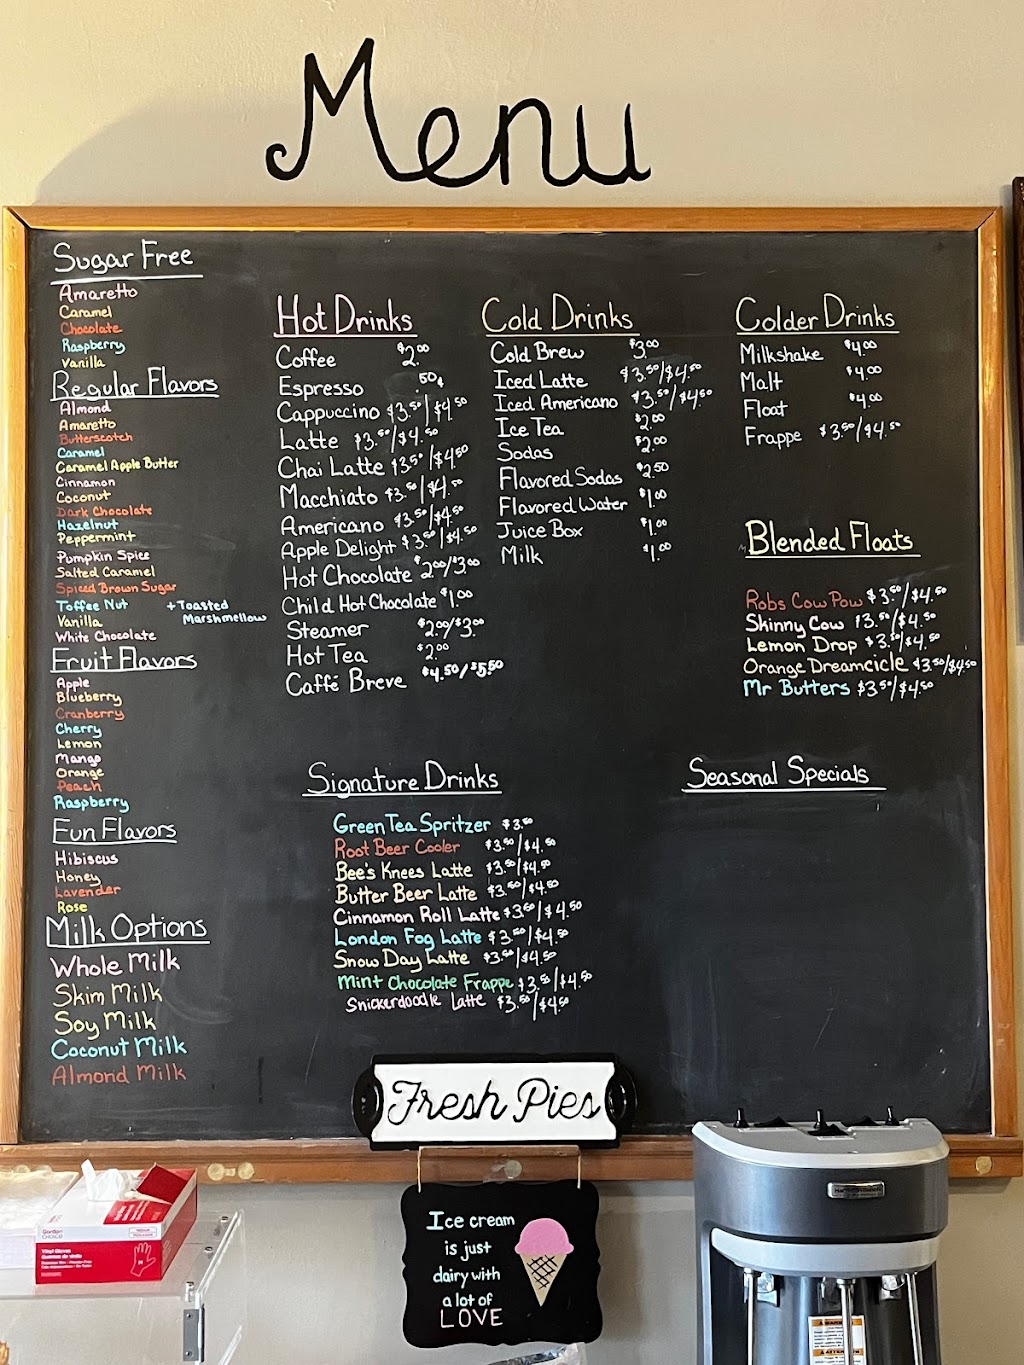 Menu
Sugar Free
Amaretto
Caramel
Chocolate
Raspberry
Vanilla
Regular Flavors
Almond
Amaretto
Butterscotch
Caramel
Caramel Apple Butter
Cinnamon
Coconut
Dark Chocolate
Hazelnut
Peppermint
Pumpkin Spice
Salted Caramel
Spiced Brown Sugar
Toffee Nut + Toasted
Vanilla Marshmellow
White Chocolate
Fruit Flavors
Apple
Blueberry
Cranberry
Cherry
Lemon
Mango
Orange
Peach
Raspberry
Fun Flavors
Hibiscus
Honey
Lavender
Rose
Milk Options
Whole Milk
Skim Milk
Soy Milk
Coconut Milk
Almond Milk
Hot Drinks
Coffee $2.00
Espresso .50¢
Cappuccino $3.50/$4.50
Latte $3.50/$4.50
Chai Latte $3.50/$4.50
Macchiato $3.50/$4.50
Americano $3.50/$4.50
Apple Delight $3.50/$4.50
Hot Chocolate $2.00/$3.00
Child Hot Chocolate $1.00
Steamer $2.00/$3.00
Hot Tea $2.00
Caffé Breve $4.50/$5.50
Cold Drinks
Cold Brew $3.00
Iced Latte $3.50/$4.50
Iced Americano $3.50/$4.50
Ice Tea $2.00
Sodas $2.00
Flavored Sodas $2.50
Flavored Water $1.00
Juice Box $1.00
Milk $1.00
Colder Drinks
Milkshake $4.00
Malt $4.00
Float $4.00
Frappe $3.50/$4.50
Blended Floats
Robs Cow Pow $3.50/$4.50
Skinny Cow $3.50/$4.50
Lemon Drop $3.50/$4.50
Orange Dreamcicle $3.50/$4.50
Mr Butters $3.50/$4.50
Signature Drinks
Green Tea Spritzer $3.50
Root Beer Cooler $3.50/$4.50
Bee's Knees Latte $3.50/$4.50
Butter Beer Latte $3.50/$4.50
Cinnamon Roll Latte $3.50/$4.50
London Fog Latte $3.50/$4.50
Snow Day Latte $3.50/$4.50
Mint Chocolate Frappe $3.50/$4.50
Snickerdoodle Latte $3.50/$4.50
Seasonal Specials
Fresh Pies
Ice cream
is just
dairy with
a lot of
LOVE
Vinyl Gloves